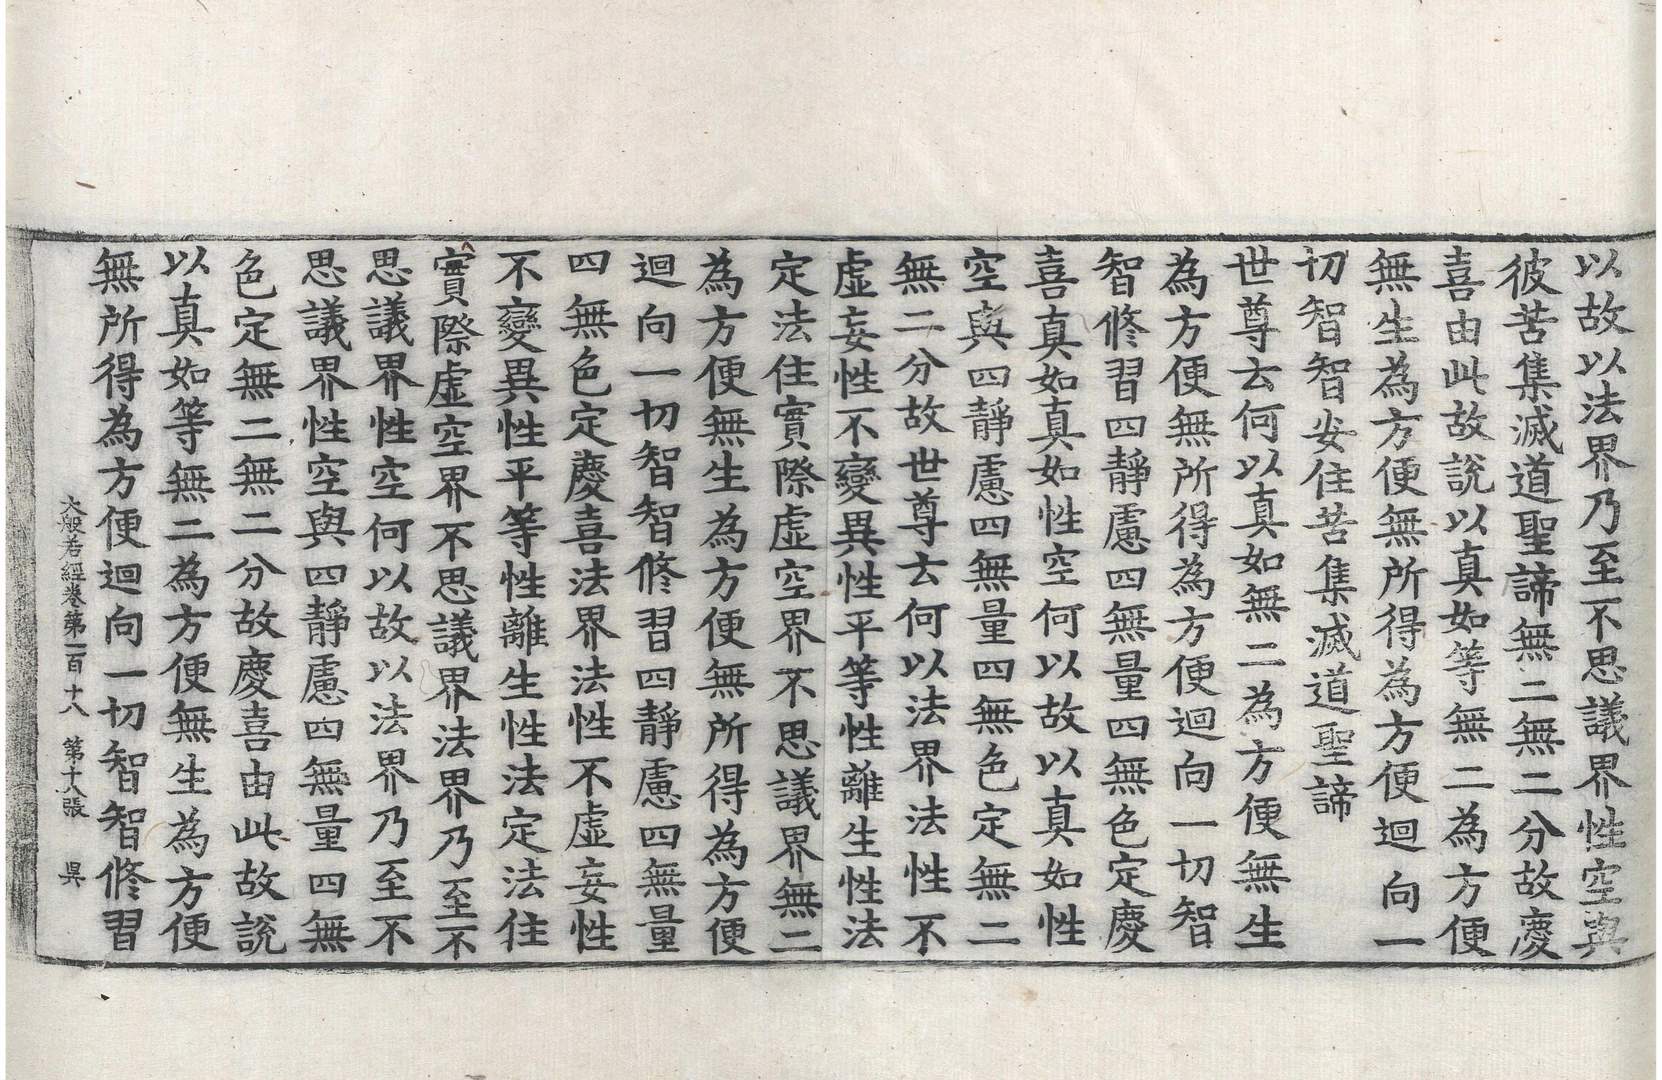 以故以法界乃至不思議界性空與
彼苦集滅道聖諦無二無二分故慶
喜由此故説以真如等無二為方便
無生為方便無所得為方便迴向一
切智智安住苦集滅道聖諦
世尊云何以真如無二為方便無生
為方便無所得為方便迴向一切智
智修習四靜慮四無量四無色定慶
喜真如真如性空何以故以真如性
空與四靜慮四無量四無色定無二
無二分故世尊云何以法界法性不
虛妄性不變異性平等性離生性法
定法住實際虛空界不思議界無二
為方便無生為方便無所得為方便
迴向一切智智修習四靜慮四無量
四無色定慶喜法界法性不虛妄性
不變異性平等性離生性法定法住
實際虛空界不思議界法界乃至不
思議界性空何以故以法界乃至不
思議界性空與四靜慮四無量四無
色定無二無二分故慶喜由此故説
以真如等無二為方便無生為方便
無所得為方便迴向一切智智修習
大般若經卷第一百十八 第十八張 昃